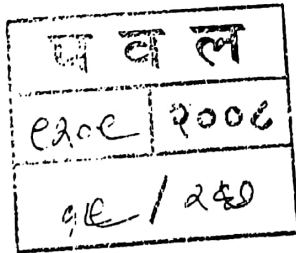 प व ल
९२०९ २००८
१९ / २४७